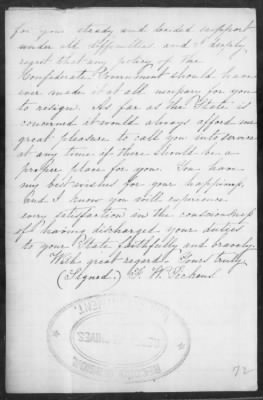 for your steady and decided support
under all difficulties and I deeply
regret that any policy of the
Confederate Government should have
ever made it at all necessary for you
to resign. As far as the State is
concerned it would always afford me
great pleasure to call you into service
at any time if there should be a
proper place for you. You have
my best wishes for your happiness,
and I know you will experience
every satisfaction in the consciousness
of having discharged your duties
to your State faithfully and bravely.
With great regard Yours truly
(Signed) F. W. Pickens
72